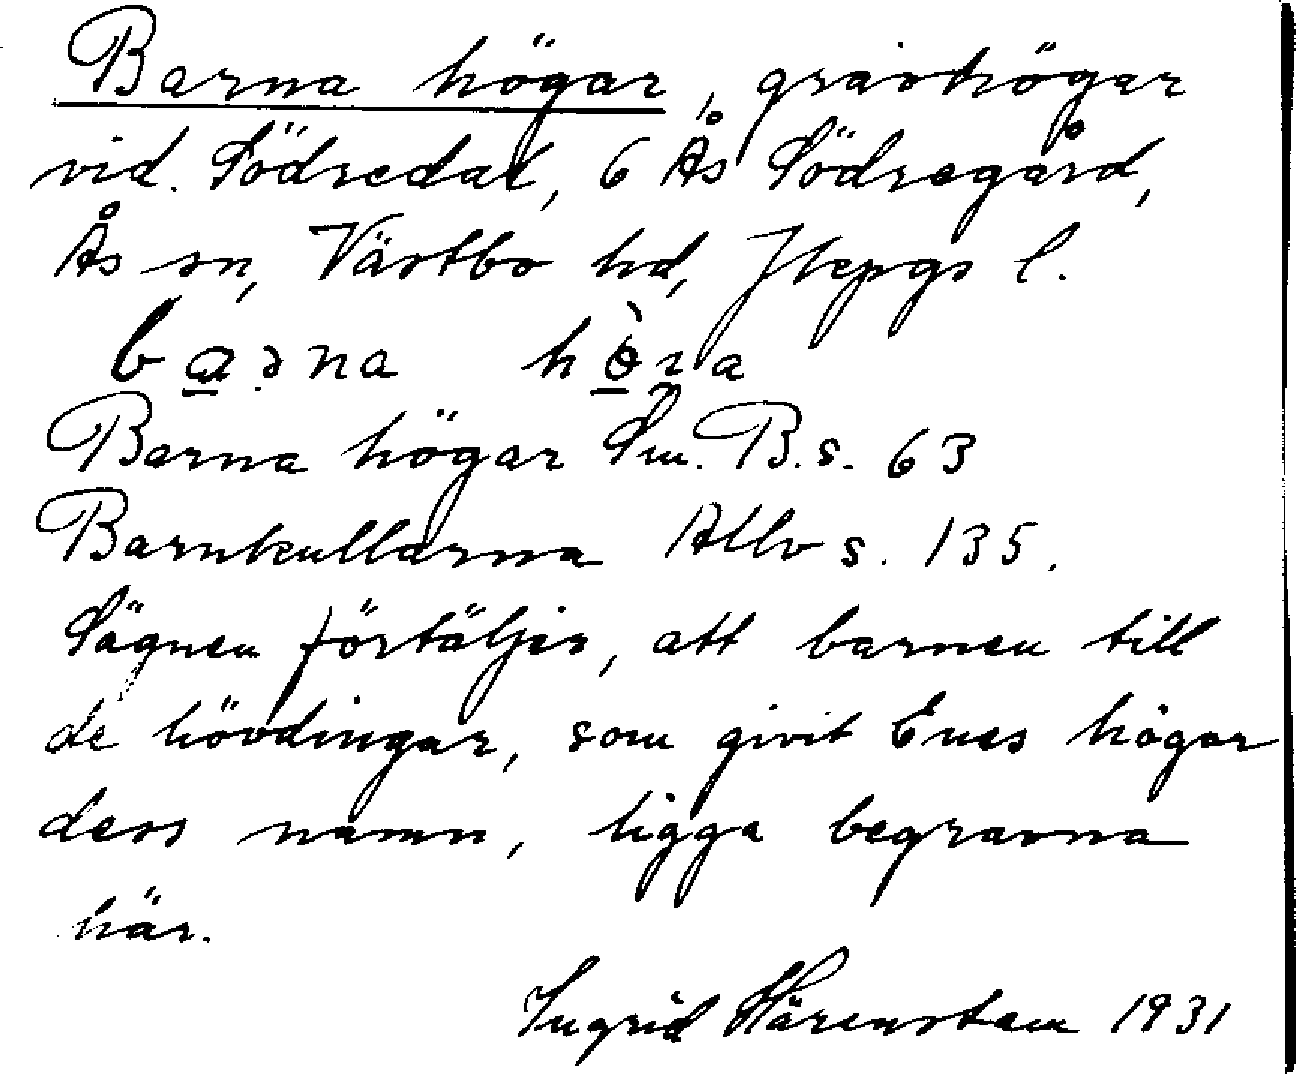 Barna högar, gravhögar
vid Södredal, 6 Ås Södregård,
Ås sn, Västbo hd, Jkpgs l.
barna
Barna högar Sm. B. s. 63
Barnkullarna Allv s. 135.
Sägnen förtäljer, att barnen till
de hövdingar, som givit Enes högar
ders namn, ligga begravna
här.
Ingrid Härenstam 1931